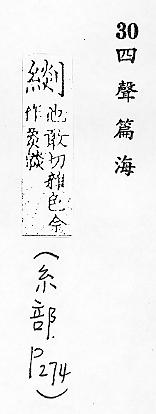 30四聲篇海
他敢切雜色今
作
(糸部.P274)